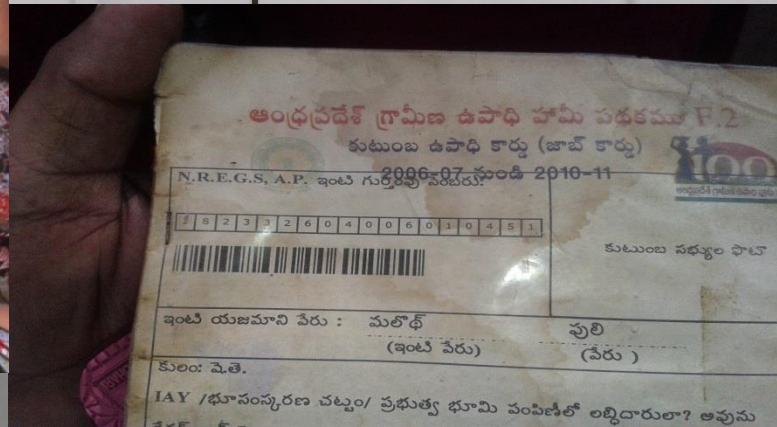 ఆంధ్రప్రదేశ్ గ్రామీణ ఉపాధి హామీ పథకము F.2
కుటుంబ ఉపాధి కార్డు (జాబ్ కార్డు)
2006-07 నుండి 2010-11
100
N.R.E.G.S, A.P. ఇంటి గుర్తింపు నెంబరు:
8 2 3 3 2 6 0 4 0 0 6 0 1 0 4 5 1
కుటుంబ సభ్యుల ఫొటో
ఇంటి యజమాని పేరు : మలోథ్ పులి
(ఇంటి పేరు) (పేరు )
కులం: షె.తె.
IAY /భూసంస్కరణ చట్టం/ ప్రభుత్వ భూమి పంపిణీలో లబ్ధిదారులా? అవును